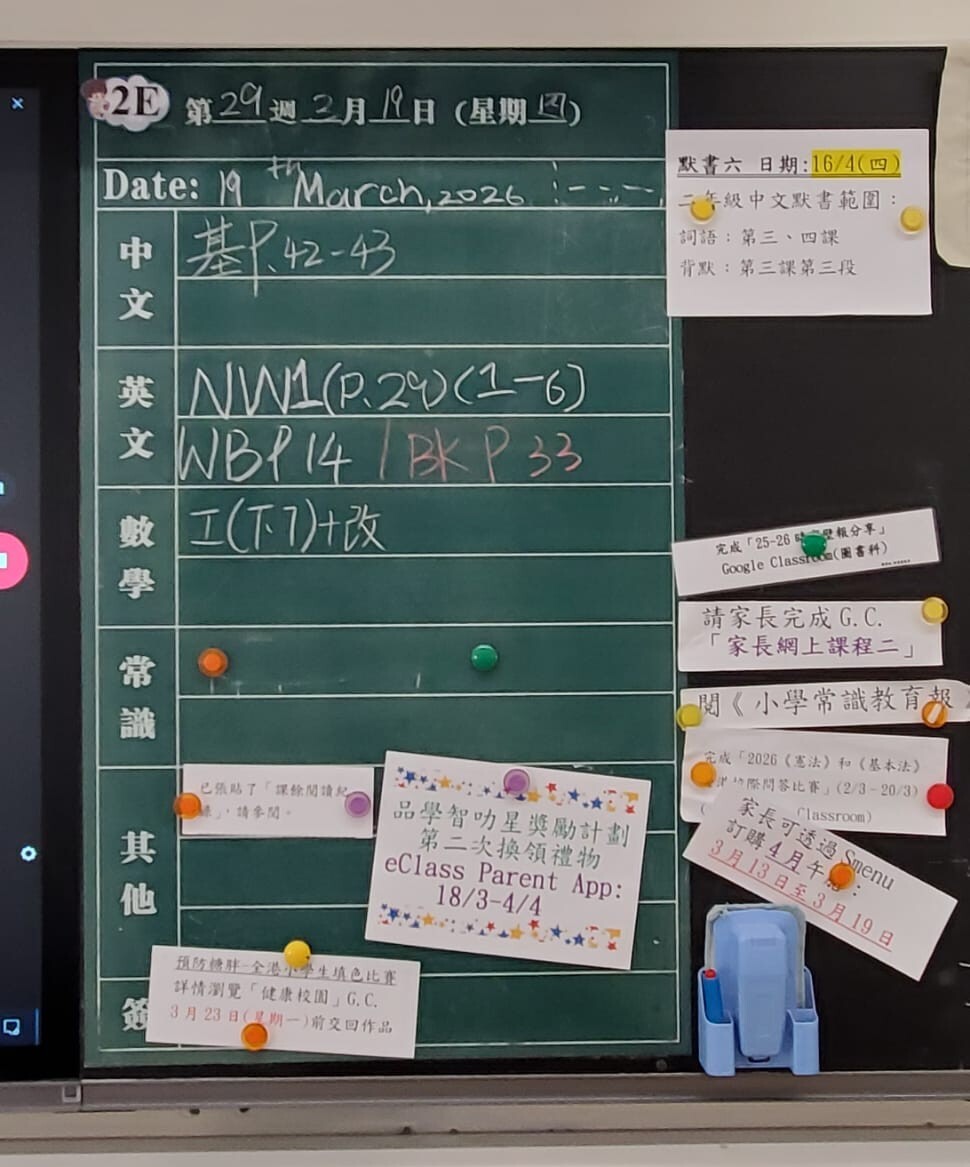 2E 第29週 3月19日(星期四)
Date: 19th March, 2026
中文
基P.42-43
英文
NW1(P.29)(1-6)
WBP14 / BK P 33
數學
工(下.7)+改
常識
其他
已張貼了「課餘閱讀紀
錄」,請參閱。
品學智叻星獎勵計劃
第二次換領禮物
eClass Parent App:
18/3-4/4
預防糖胖-全港小學生填色比賽
詳情瀏覽「健康校園」G.C.
3月23日(星期一)前交回作品
簽
默書六 日期:16/4(四)
二年級中文默書範圍:
詞語:第三、四課
背默:第三課第三段
完成「25-26 壁報分享」
Google Classroom(圖書科)
請家長完成G.C.
「家長網上課程二」
閱《小學常識教育報
完成「2026《憲法》和《基本法》
校際問答比賽」(2/3-20/3)
Classroom)
家長可透過Smenu
訂購4月午膳:
3月13日至3月19日